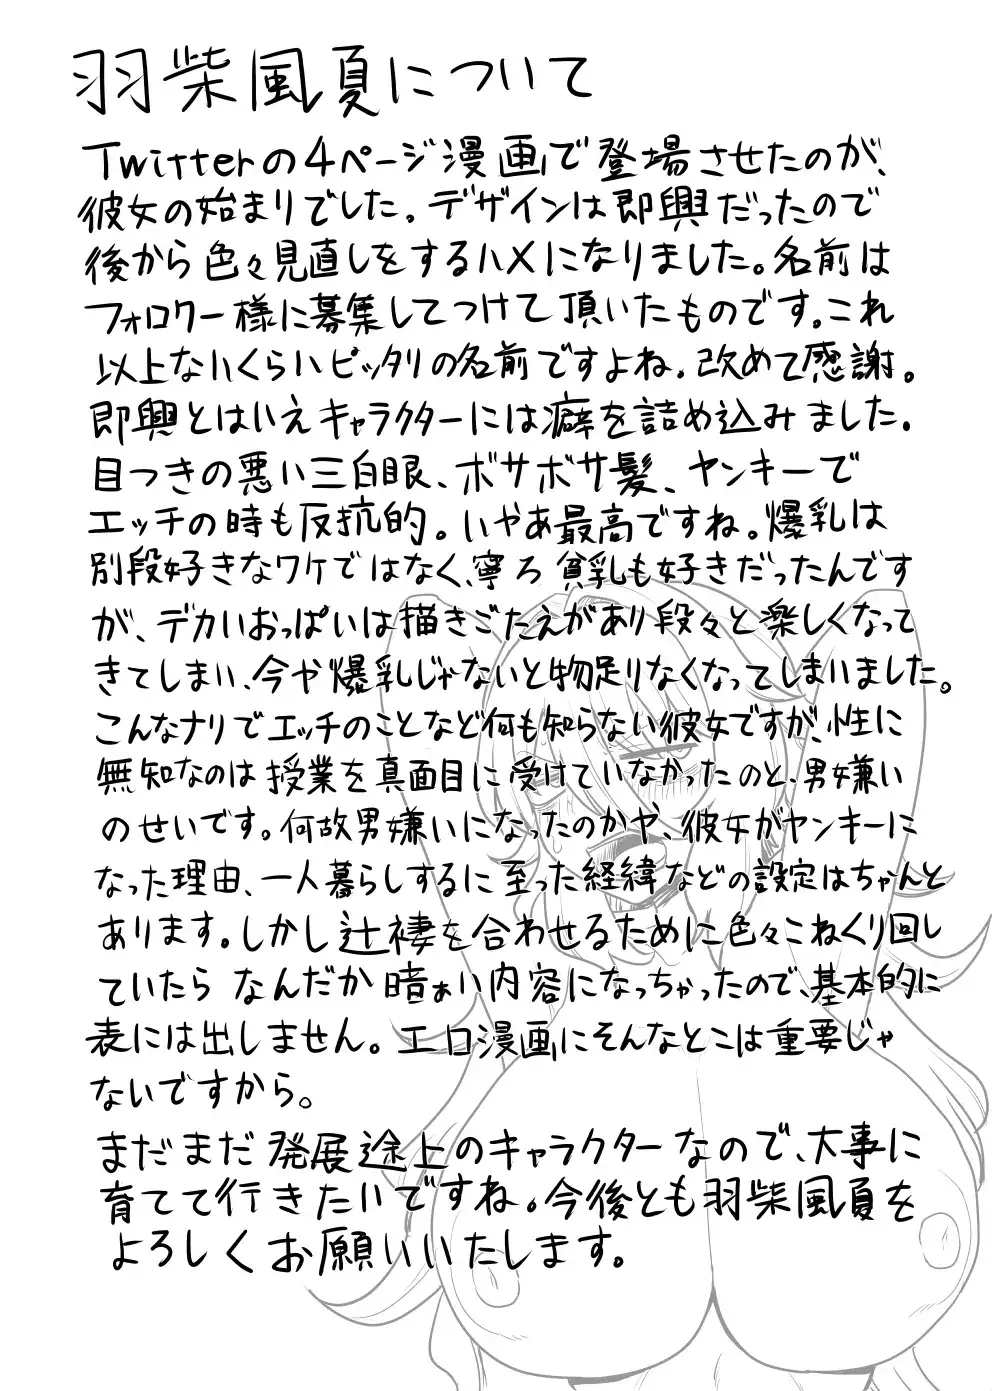 羽柴風夏について
Twitterの4ページ漫画で登場させたのが、
彼女の始まりでした。デザインは即興だったので
後から色々見直しをするハメになりました。名前は
フォロワー様に募集してつけて頂いたものです。これ
以上ないくらいピッタリの名前ですよね。改めて感謝。
即興とはいえキャラクターには癖を詰め込みました。
目つきの悪い三白眼、ボサボサ髪、ヤンキーで
エッチの時も反抗的。いやあ最高ですね。爆乳は
別段好きなワケではなく、寧ろ貧乳も好きだったんです
が、デカいおっぱいは描きごたえがあり段々と楽しくなって
きてしまい、今や爆乳じゃないと物足りなくなってしまいました。
こんなナリでエッチのことなど何も知らない彼女ですが、性に
無知なのは授業を真面目に受けていなかったのと、男嫌い
のせいです。何故男嫌いになったのかや、彼女がヤンキーに
なった理由、一人暮らしするに至った経緯などの設定はちゃんと
あります。しかし辻褄を合わせるために色々こねくり回し
ていたらなんだか暗ぁい内容になっちゃったので、基本的に
表には出しません。エロ漫画にそんなとこは重要じゃ
ないですから。
まだまだ発展途上のキャラクターなので、大事に
育てて行きたいですね。今後とも羽柴風夏を
よろしくお願いいたします。